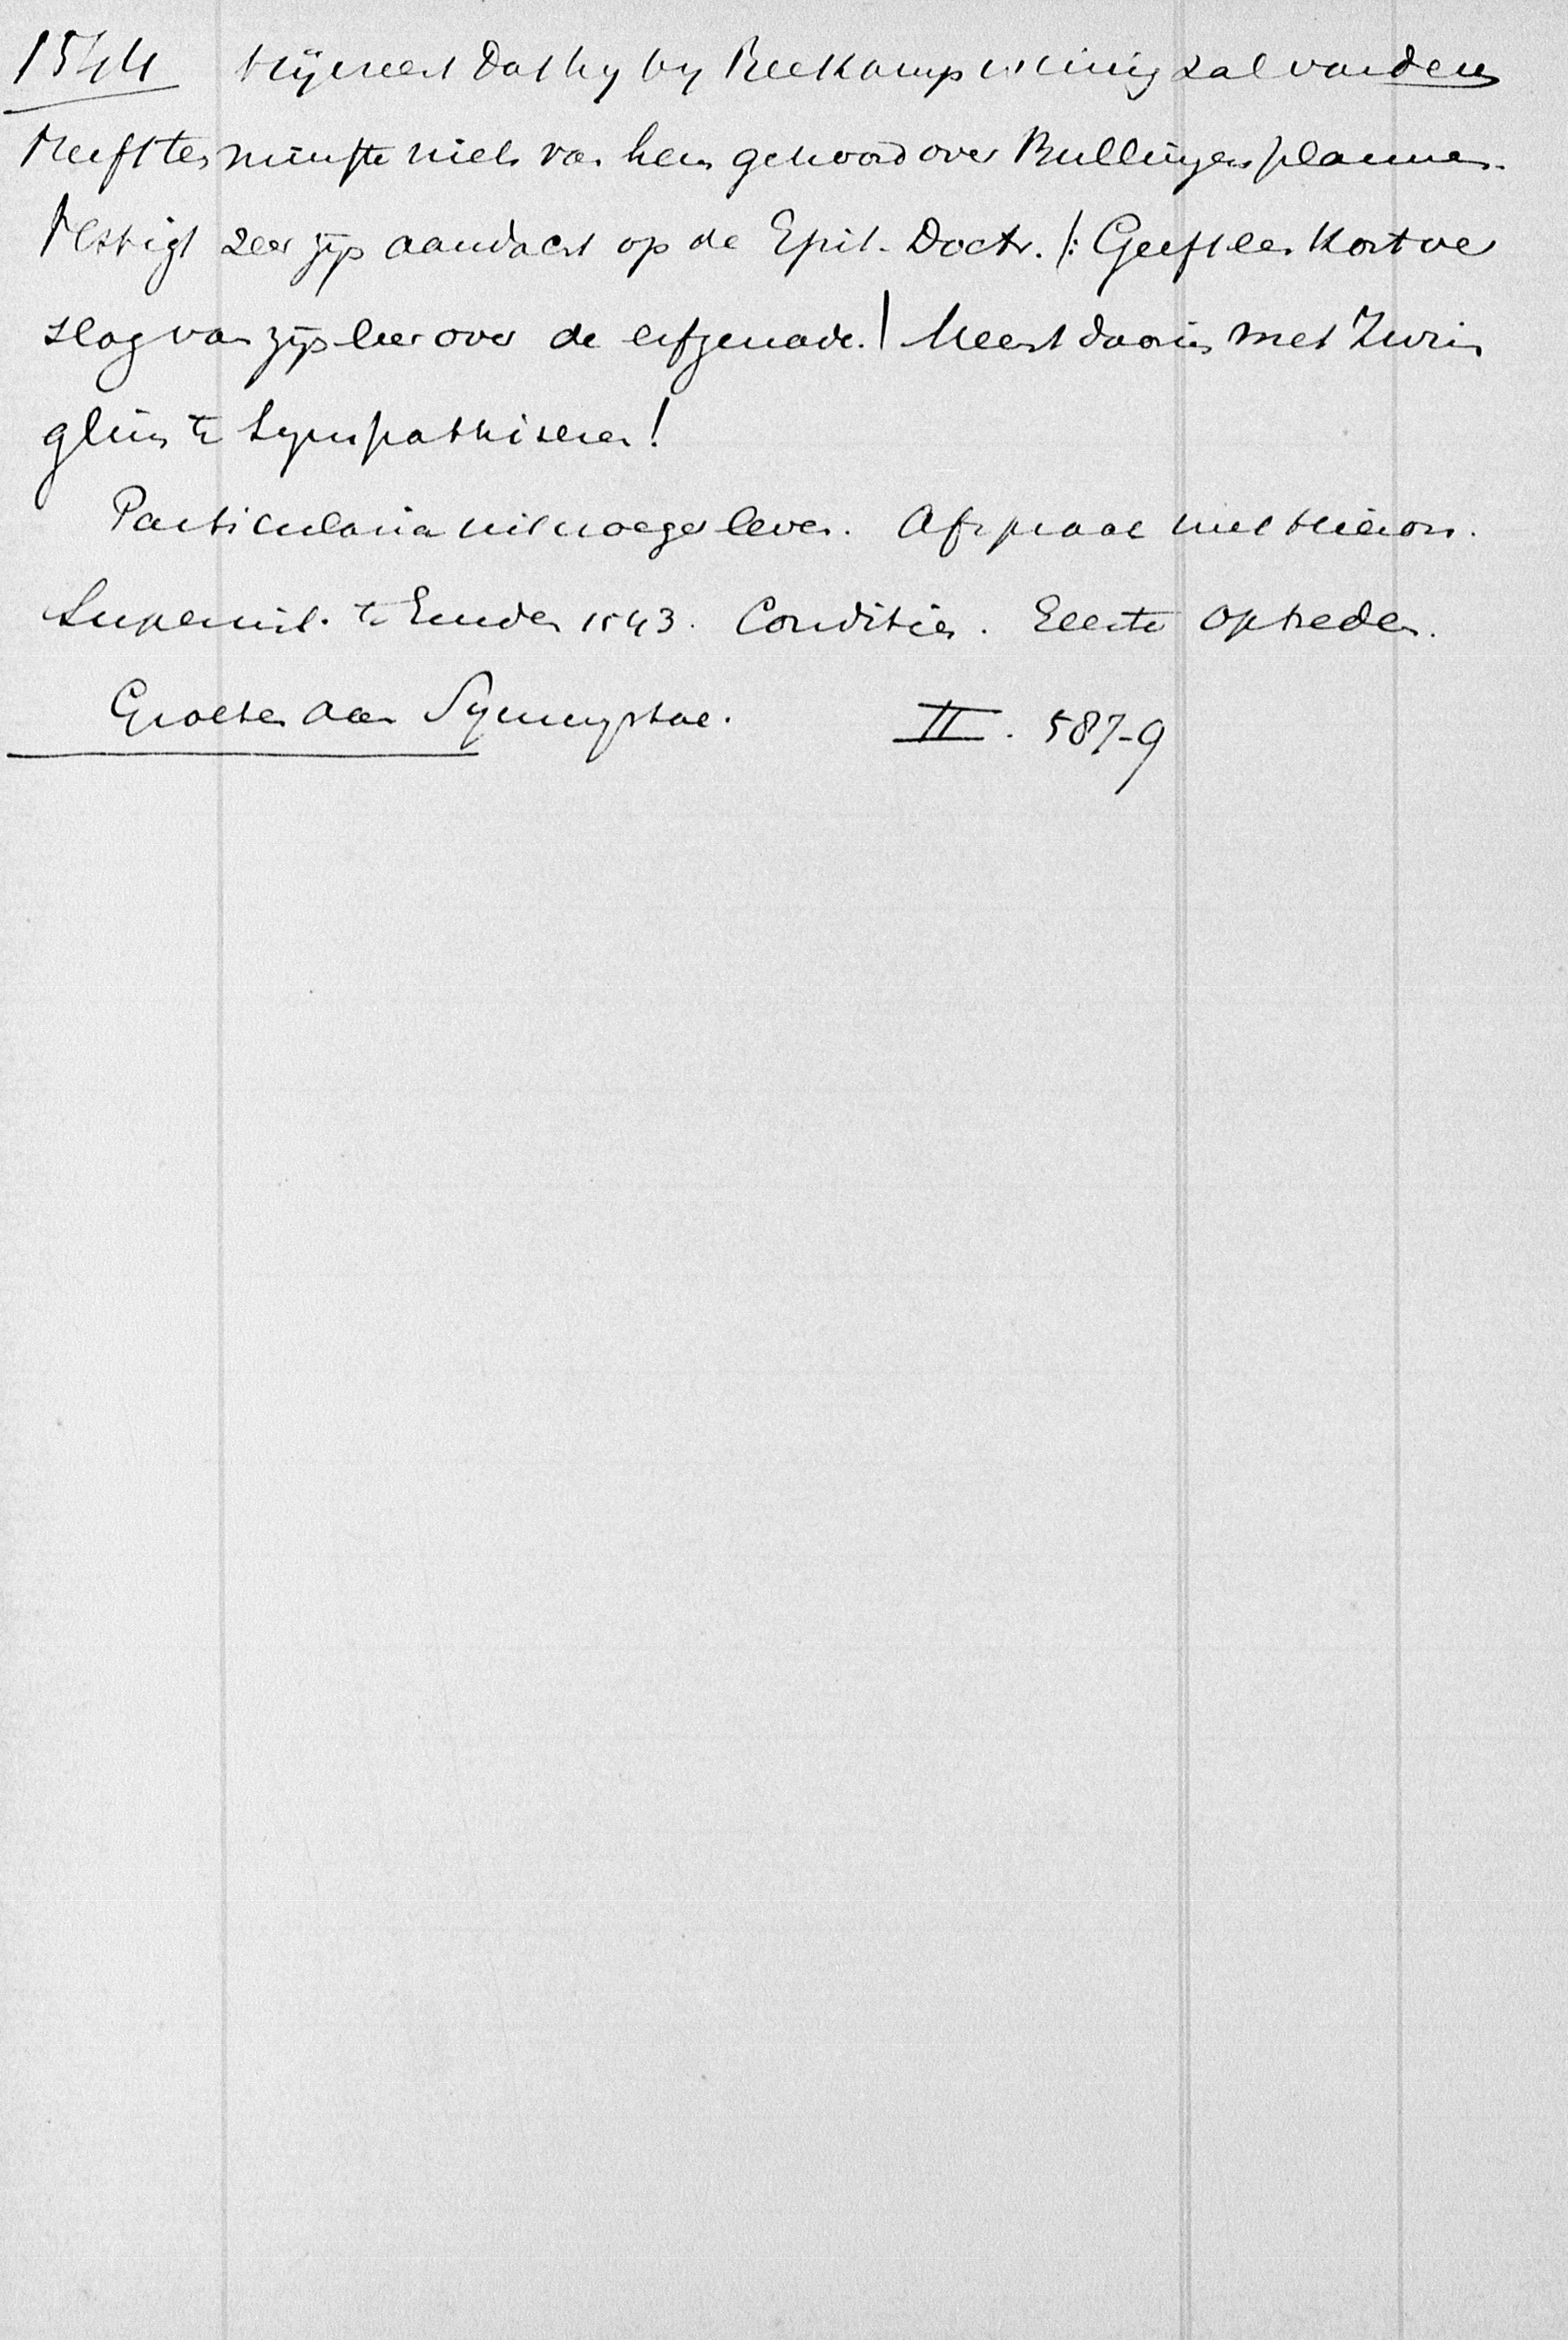 1544 Hij meent dat hy by Beekamp weinig zal vorderen
Heeft ten minste niets van hem gehoord over Bullingers plannen.
Vestigt zeer zijn aandacht op de Epit. Doctr. /: Geeft een kort ver
slag van zijn leer over de erfzonde. | Meent daarin met Zwin
glius te sympathiseren!
Particularia uit vroeger leven. Afspraak met
Superint. te Emden 1543. Condities. Eerste optreden.
Groeten aan Symmystae. II. 587-9